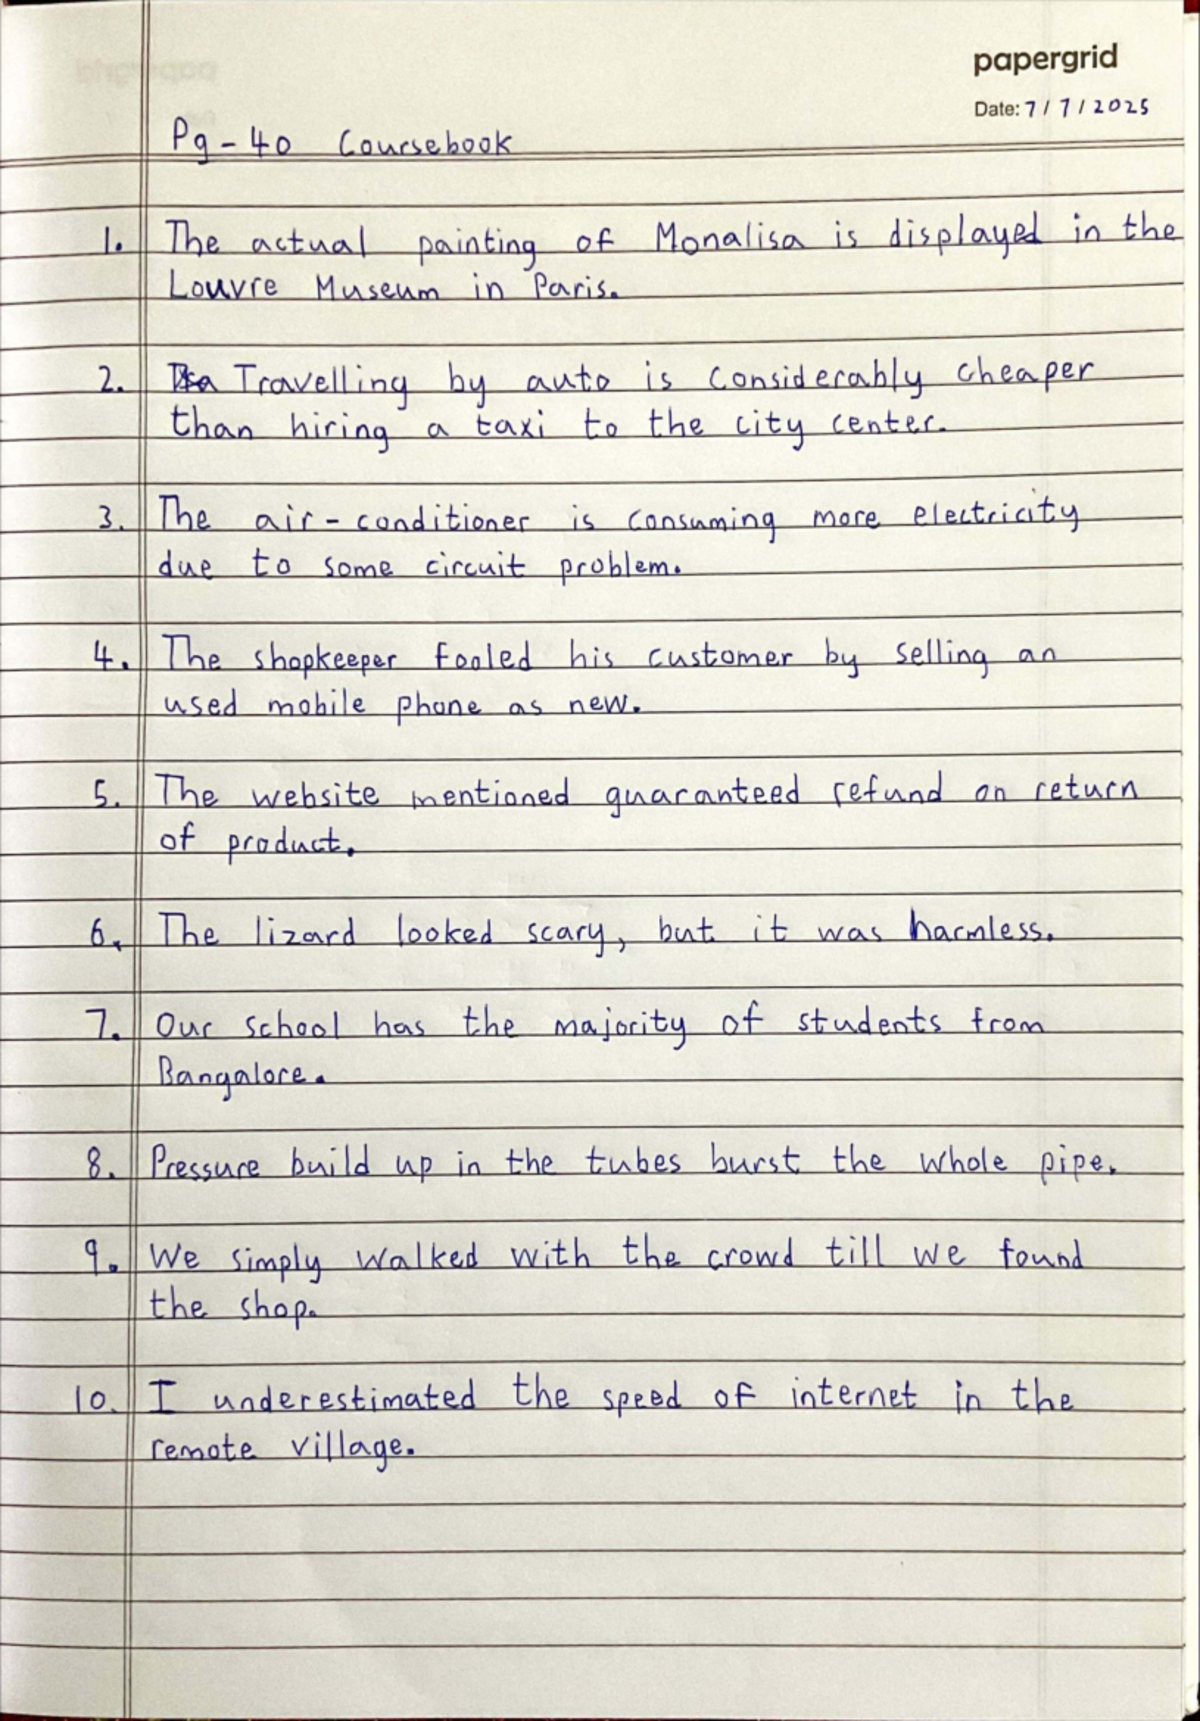 papergrid
Date: 7/7/2025
Pg-40 Coursebook
1. The actual painting of Monalisa is displayed in the
Louvre Museum in Paris.
2. Travelling by auto is considerably cheaper
than hiring a taxi to the city center.
3. The air-conditioner is consuming more electricity
due to some circuit problem.
4. The shopkeeper fooled his customer by selling an
used mobile phone as new.
5. The website mentioned guaranteed refund on return
of product.
6. The lizard looked scary, but it was harmless.
7. Our school has the majority of students from
Bangalore.
8. Pressure build up in the tubes burst the whole pipe.
9. We simply walked with the crowd till we found
the shop.
10. I underestimated the speed of internet in the
remote village.